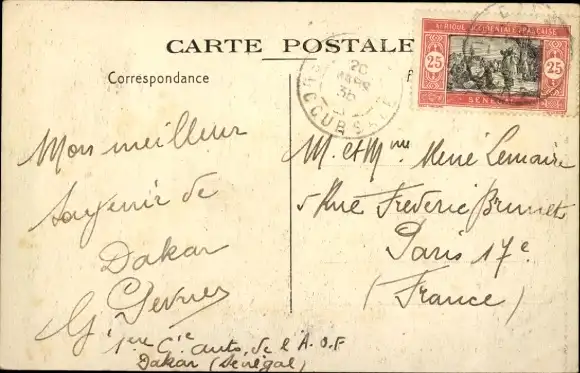 CARTE POSTALE
Correspondance
AFRIQUE OCCIDENTALE FRANÇAISE
25 25
SÉNÉGAL
20
MARS
36
Mon meilleur
souvenir de
Dakar
G.
1ère Cie auto. de l'A.O.F
Dakar (Sénégal)
M. et Mme René Lemaire
5 Rue Frederic Brunet
Paris 17e
(France)